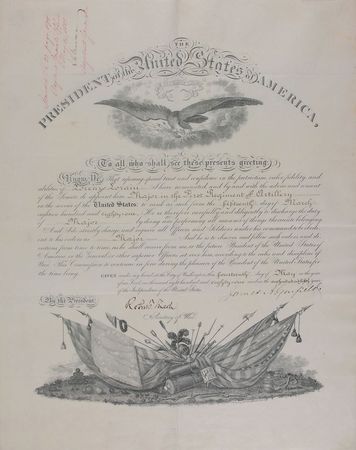 THE
PRESIDENT of the United States of AMERICA,
To all who shall see these presents greeting:
Know Ye, That reposing special trust and confidence in the patriotism, valor, fidelity and
abilities of Lorenzo Lorain I have nominated and by and with the advice and consent
of the Senate do appoint him Major in the First Regiment of Artillery
in the service of the United States: to rank as such from the fifteenth day of March
eighteen hundred and eighty one. He is therefore carefully and diligently to discharge the duty
of Major by doing and performing all manner of things thereunto belonging.
And I do strictly charge and require all Officers and Soldiers under his command to be obedi-
ent to his orders as Major. And he is to observe and follow such orders and di-
rections from time to time as he shall receive from me or the future President of the United States of
America or the General or other superior Officers set over him according to the rules and discipline of
War. This Commission to continue in force during the pleasure of the President of the United States for
the time being.
GIVEN under my hand at the City of Washington this fourteenth day of May in the year
of our Lord one thousand eight hundred and eighty one and in the one hundred and fifth year
of the Independence of the United States.
By the President
James A. Garfield
Robert T. Lincoln
Secretary of War.